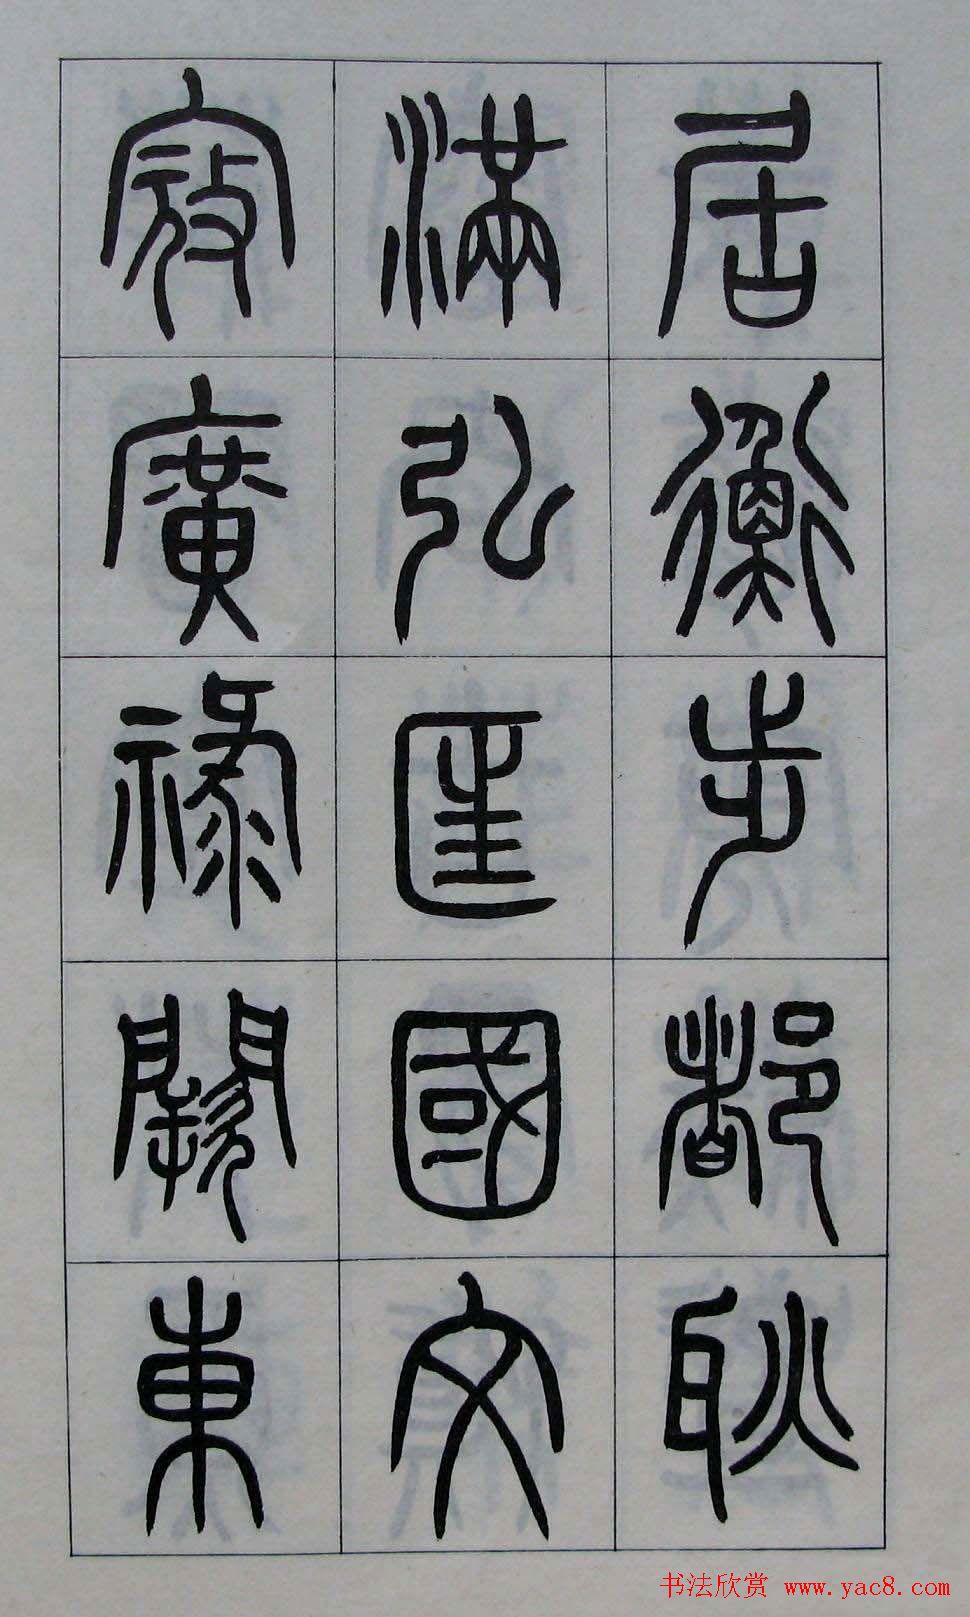 居衡步都耿
滿弘匡國文
寇廣祿闕東
书法欣赏 www.yac8.com